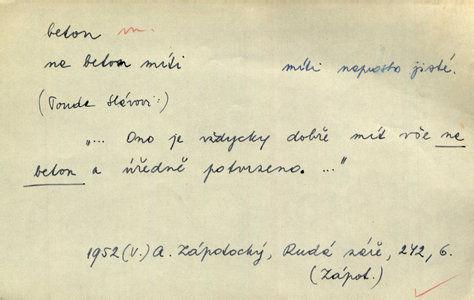 beton m.
na beton míti míti naprosto jisté.
(Tonda Slávovi:)
„... Ono je vždycky dobře mít vše na
beton a úředně potvrzeno. ..."
1952 (V.) A. Zápotocký, Rudá záře, 242, 6.
(Zápot.)